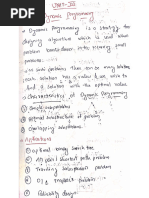 UNIT-III
Dynamic Programming
→ Dynamic Programming is a strategy for
designing algorithm which is used when
problem breaks down into recurring small
problems.
→ In such problems there can be many solutions
each solution has a value & we wish to
find
→ Characteristics of Dynamic Programming
1) Simple subproblems
2) optimal substructure of problems
3) overlapping subproblems
→ Applications
1) optimal binary search tree
2) All pairs shortest path problem
3) Travelling sales person problem
4) 0/1 knapsack problem
5) Reliability design